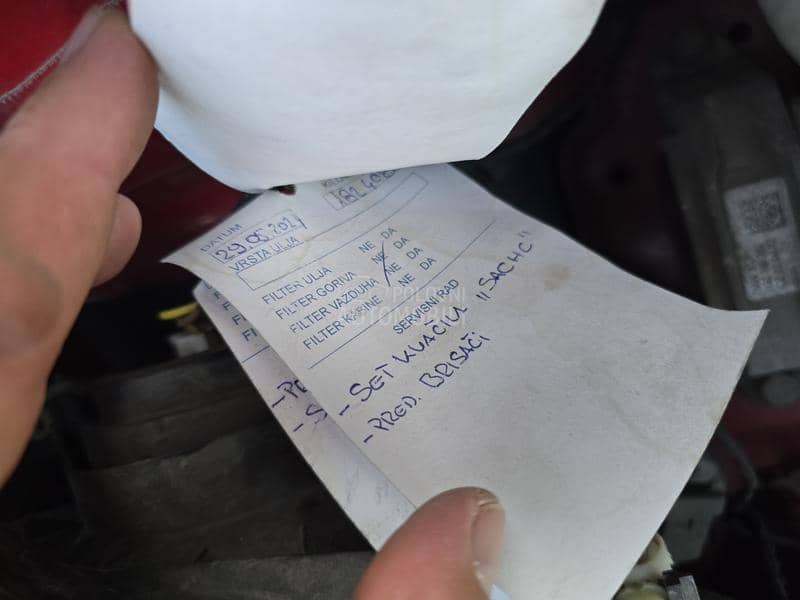 DATUM
29.05.2024
182 40
VRSTA ULJA
FILTER ULJA NE DA
FILTER GORIVA NE DA
FILTER VAZDUHA NE DA
FILTER KABINE NE DA
SERVISNI RAD
-SET KVAČILA "SACHC"
-PRED. BRISAČI
POLOVNI
AUTOMOBILI